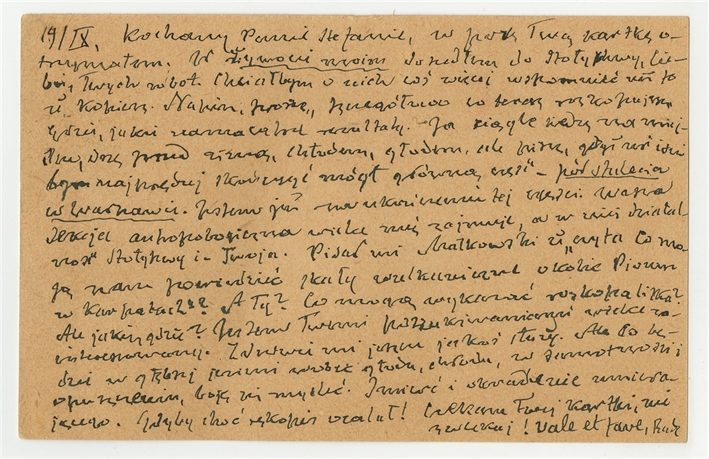 19/IX, Kochany Panie Stefanie, w porę Twą kartkę o-
trzymałem. W Żywocie moim doszedłem do Stołyhwy, lic-
bę Twych robót. Chciałbym o nich coś więcej wspomnieć niż to
u Kopiery. Napisz, proszę, szczegółowo co teraz rozkopujesz
gdzie, jakie namacalne rezultaty. Ja ciągle siedzę na miej-
scu, drżę przed zimą, chłodem, głodem, ale piszę, gdyż
bym najprędzej skończyć mógł główną część - pół stulecia
w Warszawie. Jestem już na ukończeniu tej części. Wasza
sekcja antropologiczna wielce mię zajmuje, a w niej działal-
ność Stołyhwy i - Twoja. Pisał mi Małkowski: "czyta co mo-
gą nam powiedzieć skały wulkaniczne okolic Pienin
w Karpatach"? A Ty? Co mogą wykazać rozkopaliska?
Ale jakie, gdzie? Jestem Twemi poszukiwaniami wielce za-
interesowany. Zdrowie mi jeszcze jakoś służy. Ale co bę-
dzie w głębszej jesieni wobec głodu, chłodu, w samotności i
opuszczeniu, boję się myśleć. Śmierć i okradzenie umiera-
jącego. Gdyby choć rękopis ocalał! Czekam Twej kartki, nie
zwlekaj! Vale et fave,